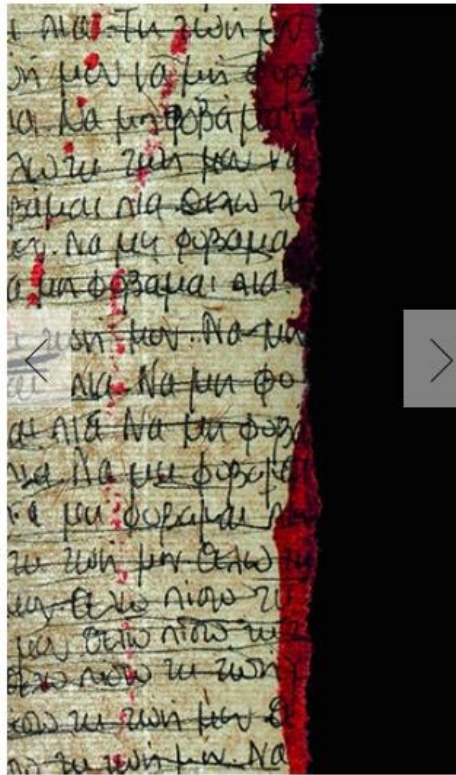 πια. Τη ζωή μου
μου να μη φοβα
Να μη φοβάμαι
τη ζωή μου να
βαμαι πια. Θελω τη
Να μη φοβαμαι
μη φοβαμαι πια.
ζωη μου. Να μη
πια. Να μη φο
πια Να μη φοβα
πια. Να μη φοβαμαι
μη φοβαμαι
τη ζωή μου. Θελω
Θελω πισω τη
μου Θελω πισω τη ζ
Θελω πισω τη ζωη
τη ζωή μου Θ
τη ζωή μου. Να